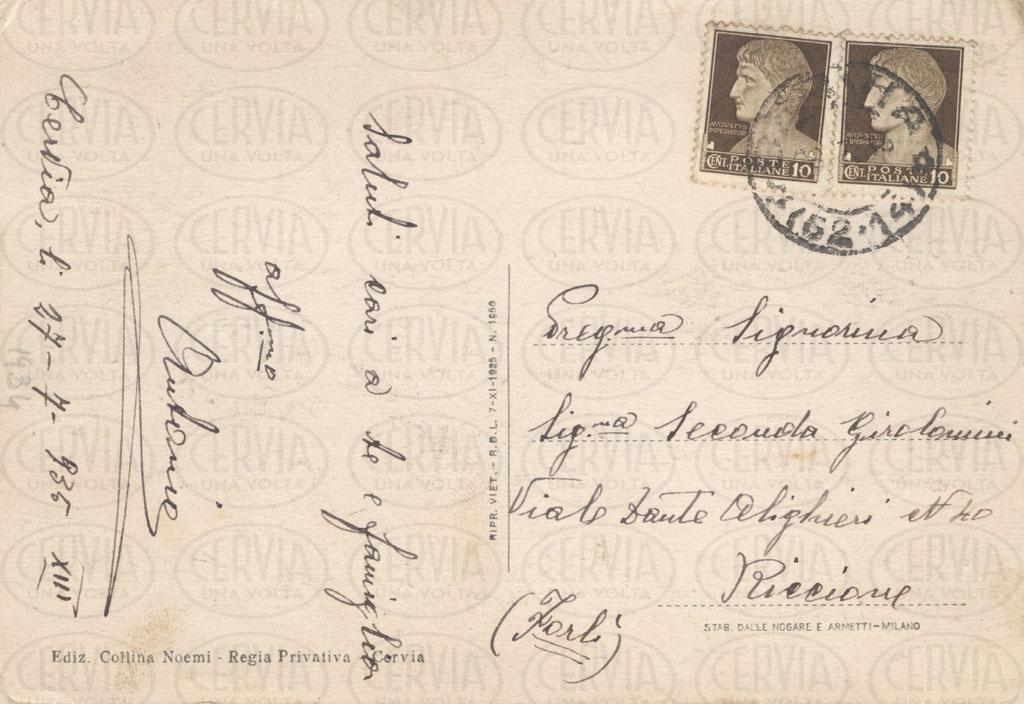 Cervia, li 27-7-935 XIII
Saluti cari a te e famiglia
aff.mo
Antonio
1934
Ediz. Collina Noemi - Regia Privativa - Cervia
RIPR. VIET. - R.D.L. 7-XI-1925 - N. 1950
AVGVSTVS
IMPERATOR
POSTE
CENT. ITALIANE 10
AVGVSTVS
IMPERATOR
POSTE
CENT. ITALIANE 10
Preg.ma Signorina
Sig.na Seconda Girolomini
Viale Dante Alighieri
Riccione
(Forlì)
STAB. DALLE NOGARE E ARMETTI-MILANO
CERVIA
UNA VOLTA